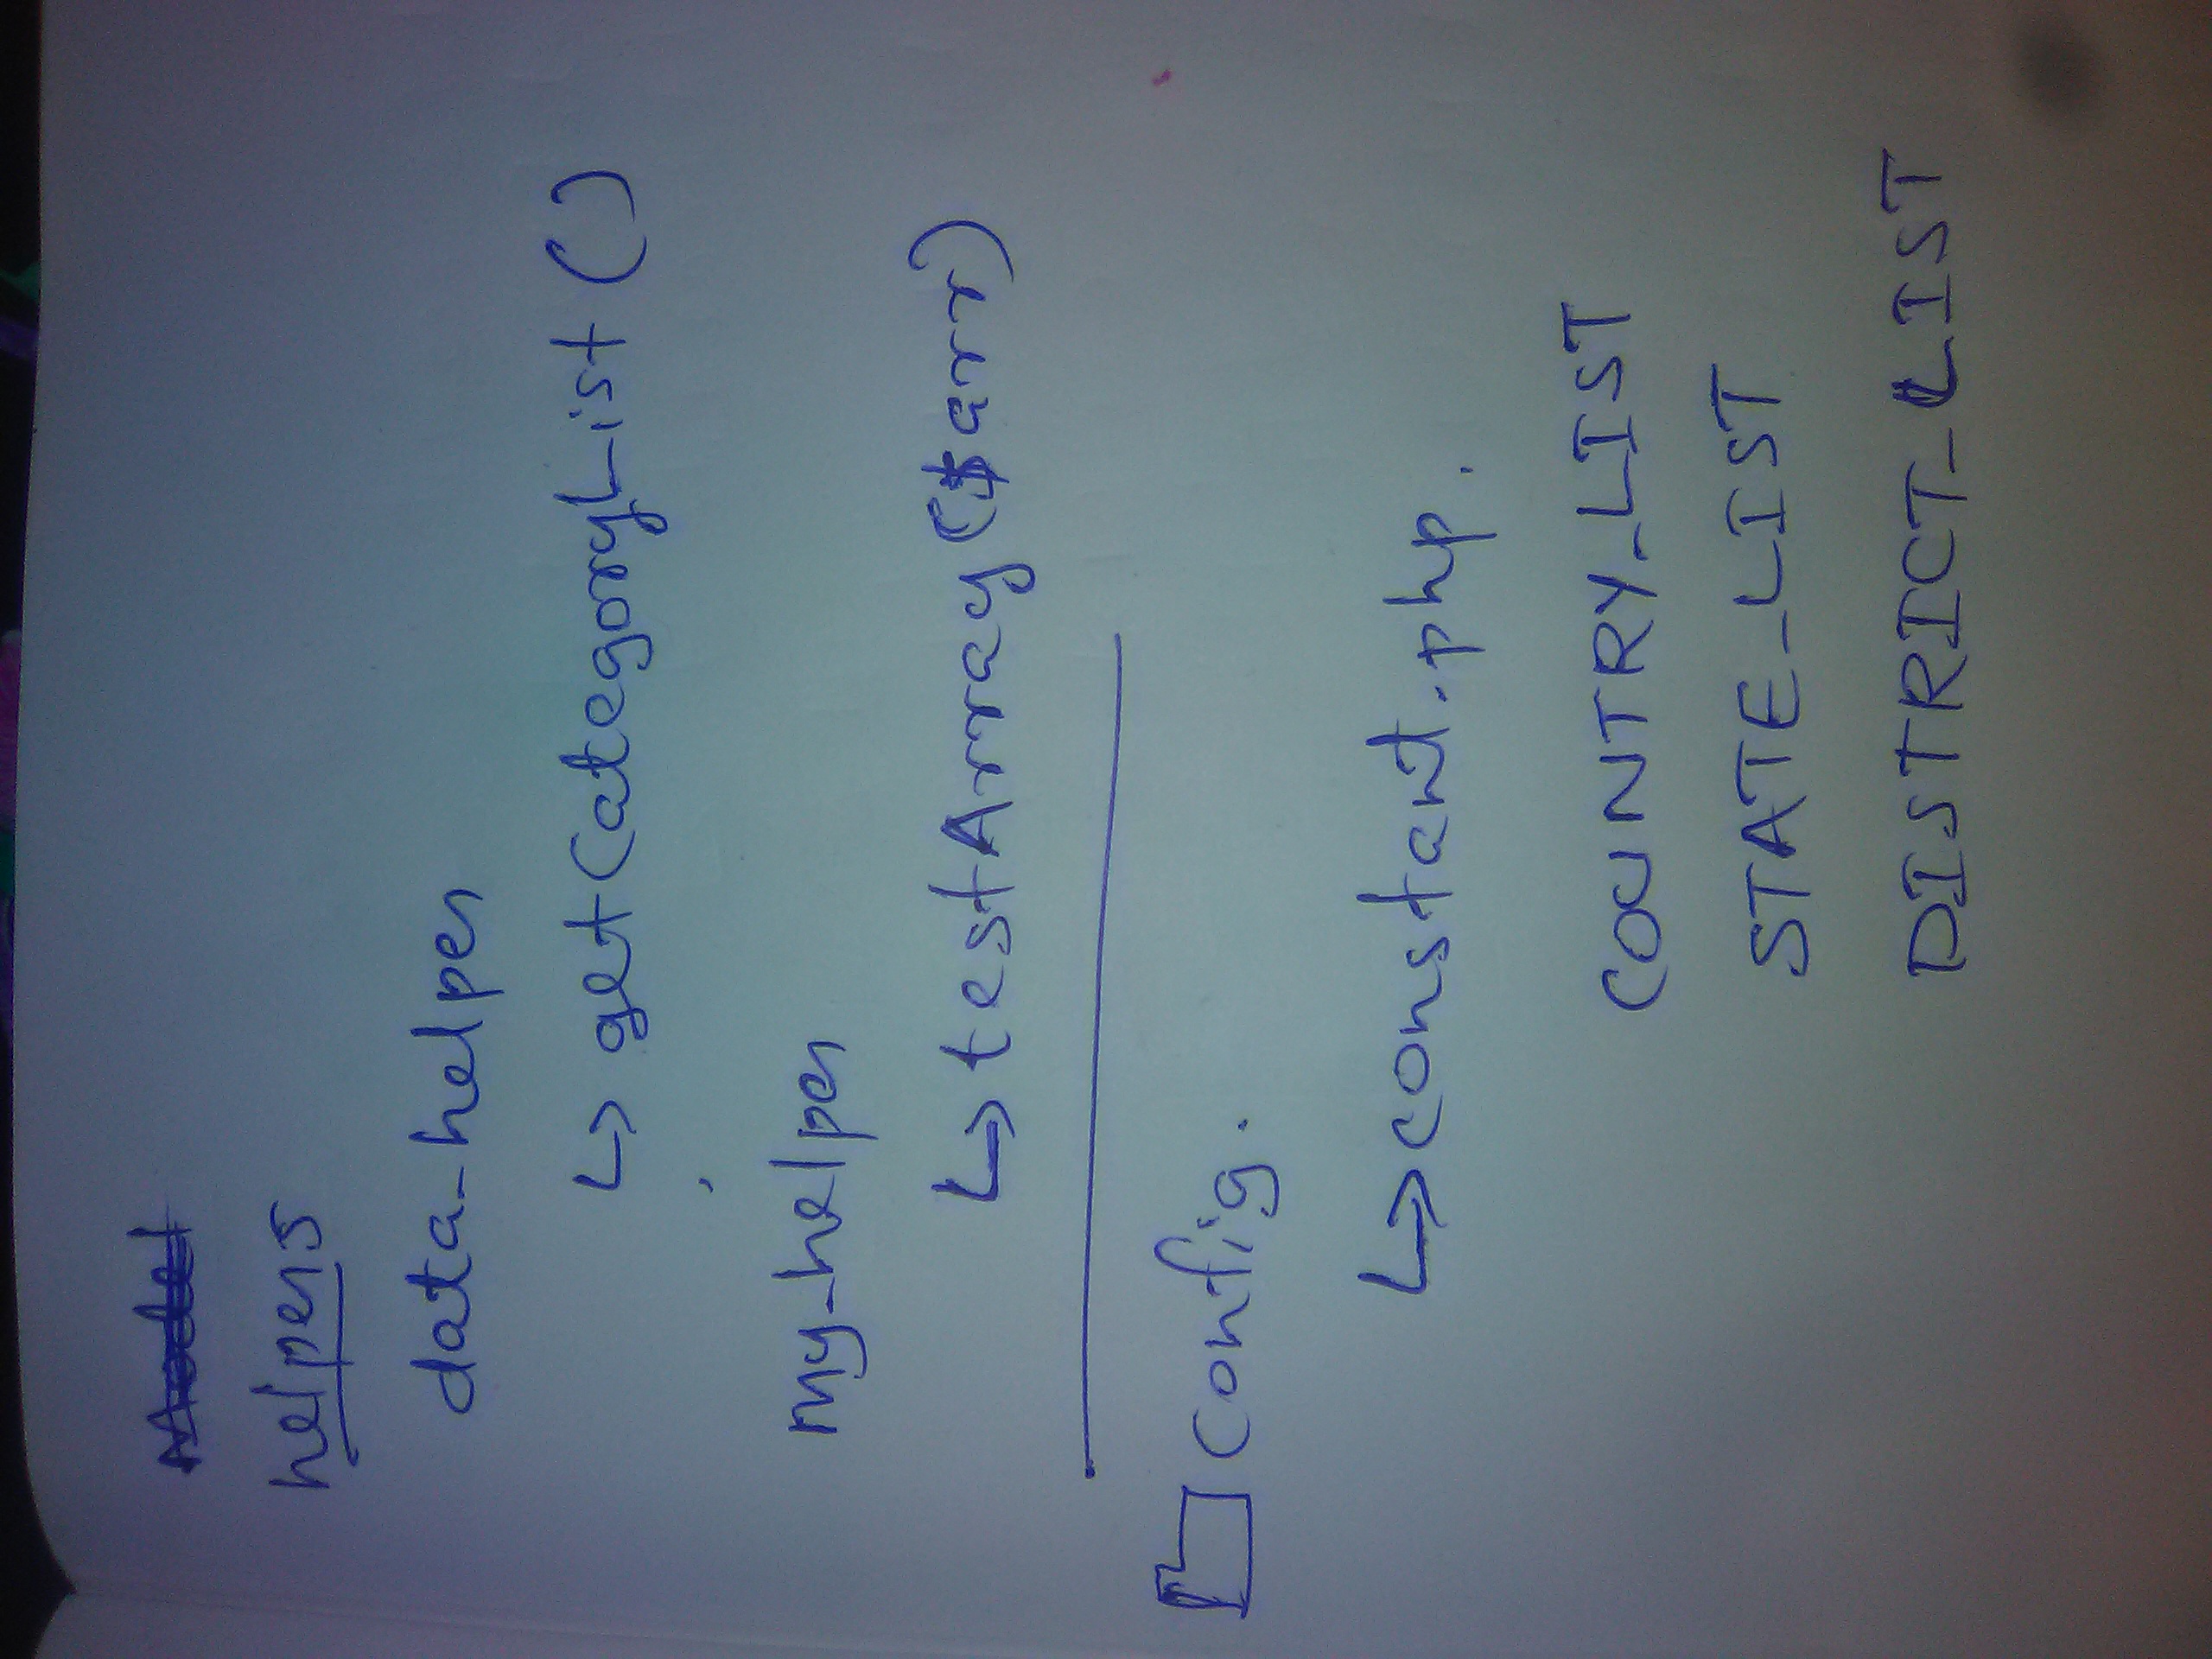 helpers
data-helper
↳ getCategoryList ()
my-helper
↳ testArray ($arr)
Config.
↳ constant.php.
COUNTRY_LIST
STATE_LIST
DISTRICT_LIST